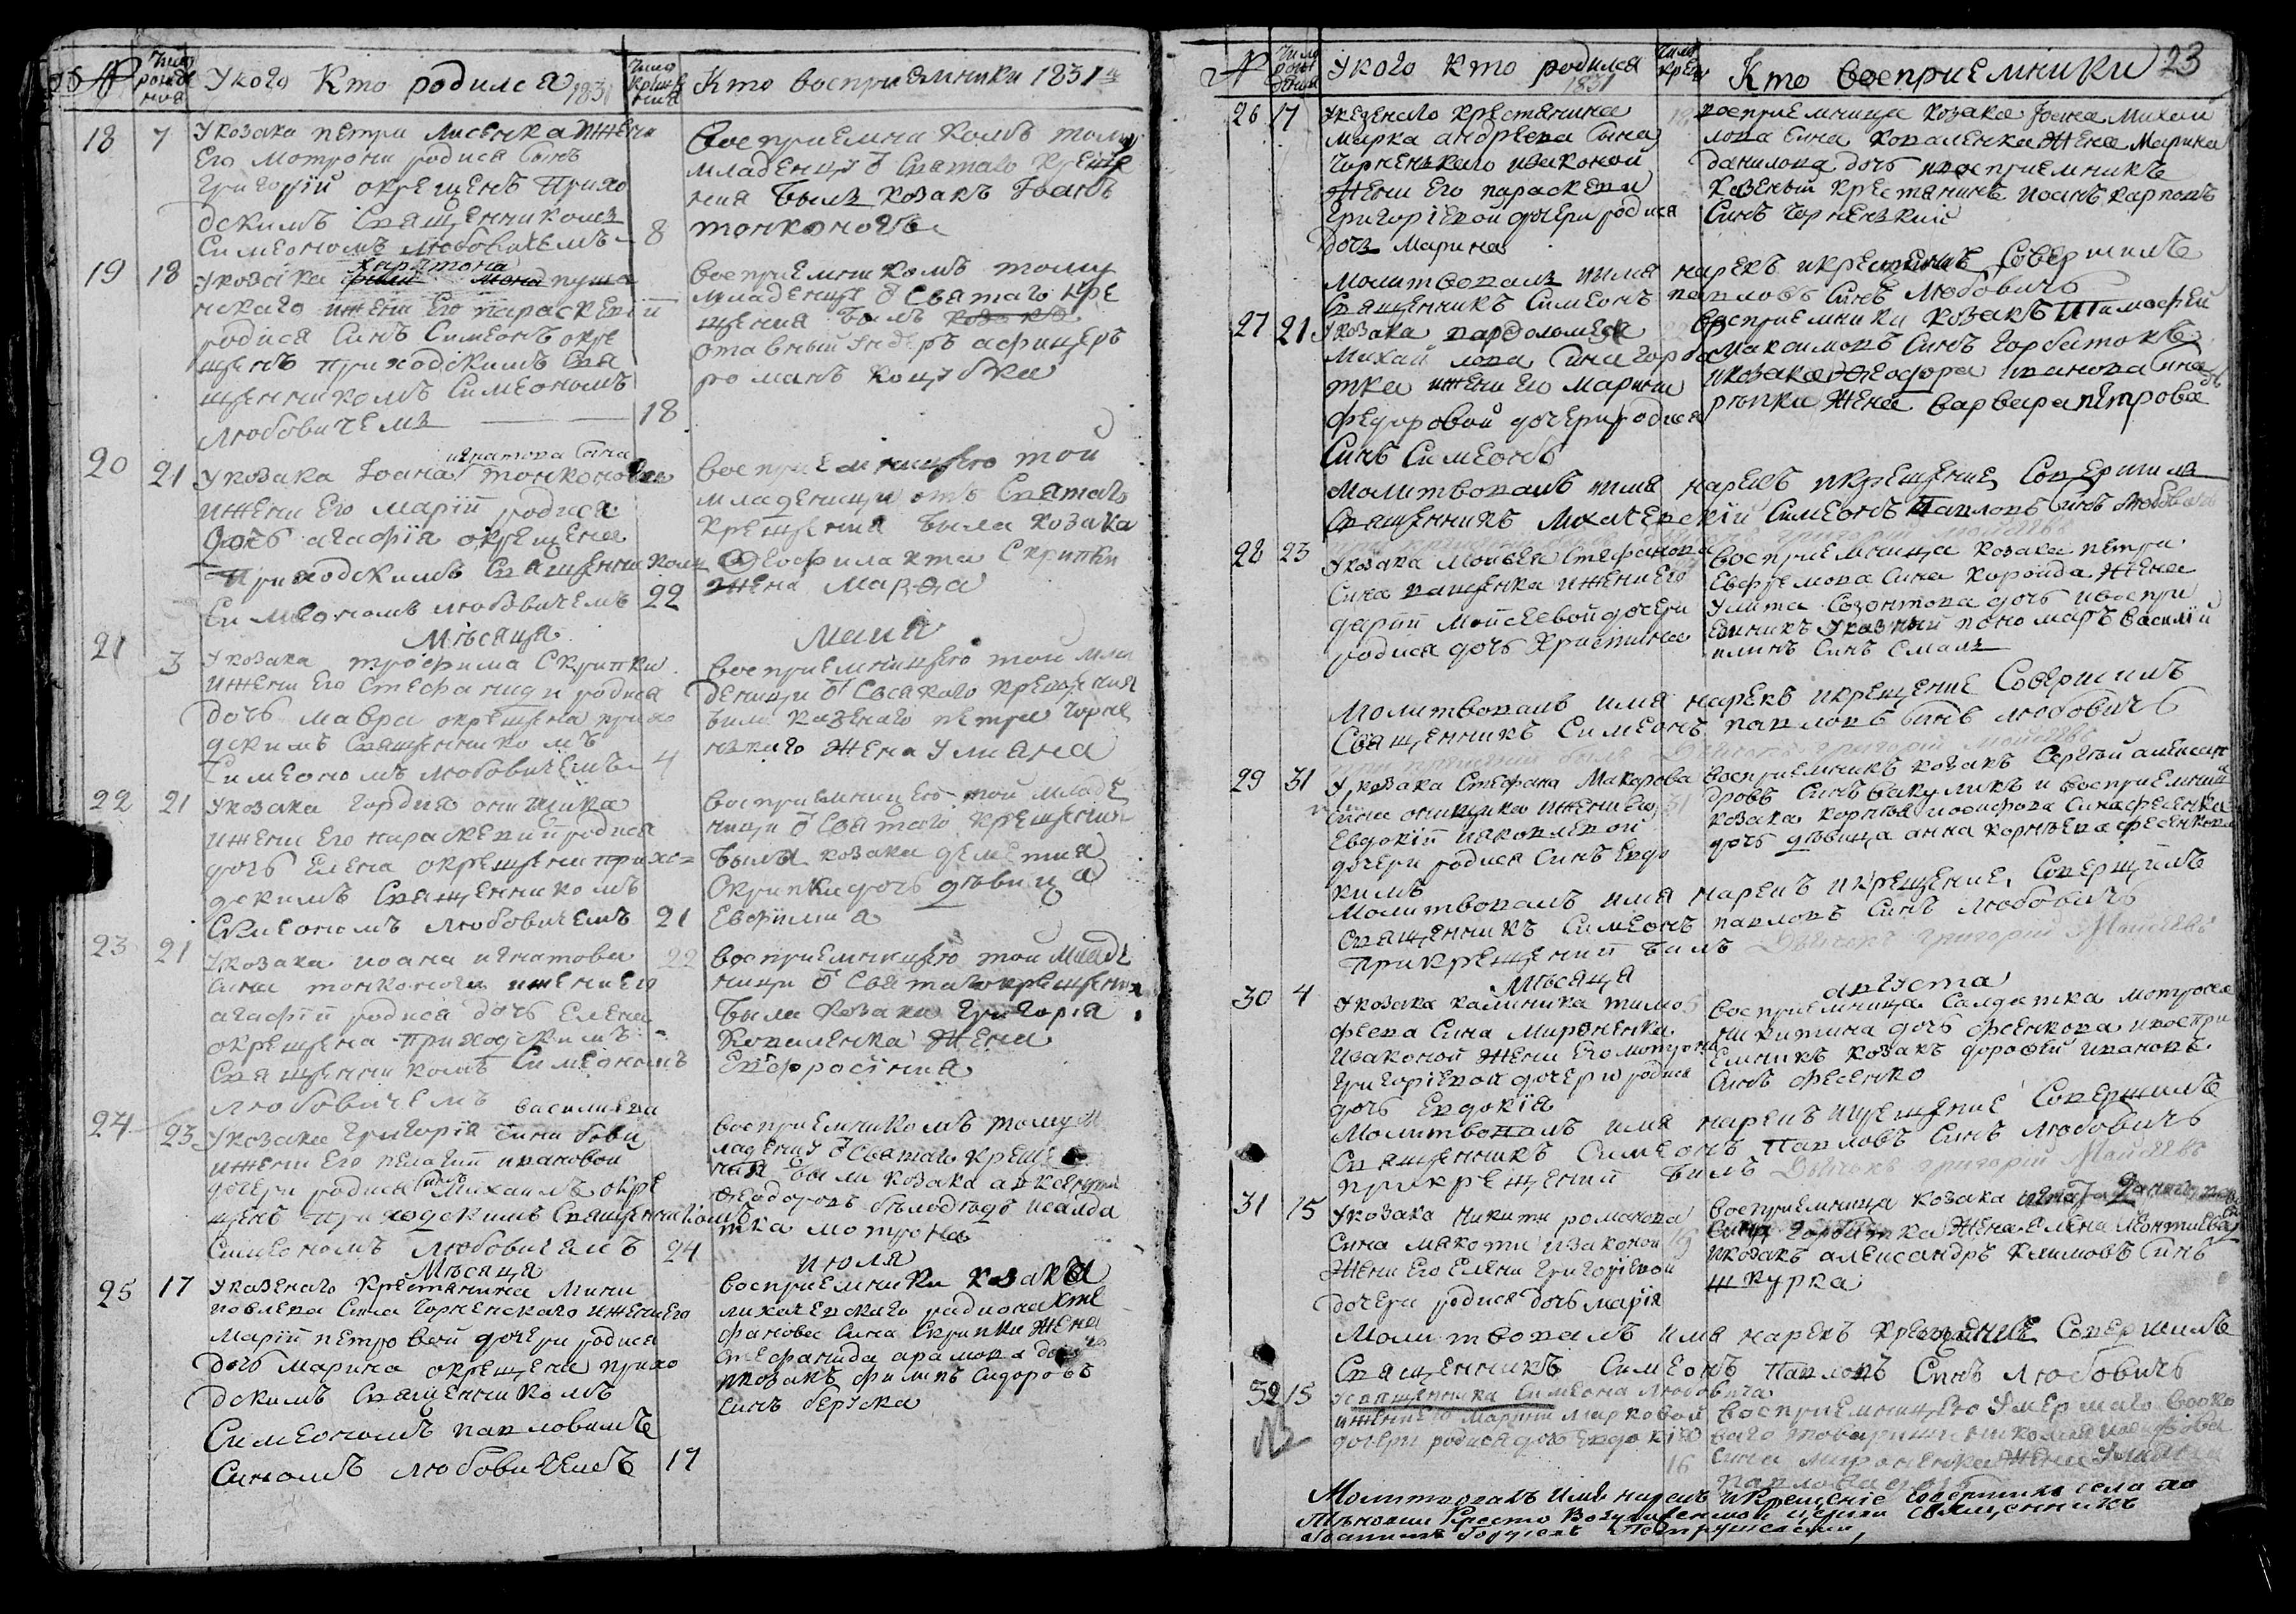 № Число рожде ния У кого Кто родился 1831 Число креще ния Кто восприемники 1831 г
18 7 У козака петра лисенка и жени
Его мотрони родися Сынъ
Григорїй окрещенъ Прихо
дскимъ Священникомъ
Симеономъ любовичемъ 8
восприемникомъ тому
младенцу ѿ Святаго Креще
ния Былъ козакъ Іоанъ
тонконогъ
19 18 У козака харитона пуша
нскаго и жени Его параскевїи
родися Синъ Симеонъ окре
щенъ Приходскимъ Свя
щенникомъ Симеономъ
любовичемъ 18
восприемникомъ тому
младенцу ѿ Святаго кре
щения Былъ
отавный ундеръ афицеръ
романъ коцубка
20 21 У козака Іоана игнатова Сина тонконога
и жени Его марїи родися
Дочь агафїя окрещена
Приходскимъ Священникомъ
Симеономъ любовичемъ 22
восприемницею той
младеници отъ Святаго
крещения была козака
Феофилакта Скрипки
жена Марфа
Месяца Маия
21 3 У козака трофима Скрипки
и жени Его Стефаниди родися
дочь мавра окрещена прихо
дскимъ Священникомъ
Симеономъ любовичемъ 4
восприемницею той мла
деници ѿ Святаго крещения
была казенаго петра Чорне
нкаго жена Улияна
22 21 У козака гордия онищика
и жени Его параскевїи родися
дочь Елена окрещена прихо
дскимъ Священникомъ
Симеономъ любовичемъ 21
восприемницею той младе
ници ѿ Святаго крещения
была козака дементия
Скрипки дочь девица
Евфимия
23 21 У козака иоана игнатова
Сина тонконога и жени его
агафїи родися дочь Елена
окрещена Приходскимъ
Священникомъ Симеономъ
любовичемъ 22
восприемницею той младе
ници ѿ Святаго крещения
Была козака Григорїя
Коваленка Жена
Евфросїния
24 23 У козака Григорїя василиева Сина бови
и жени Его пелагїи ивановой
дочери родися Синъ Михаилъ окре
щенъ приходскимъ Священникомъ
Симеономъ любовичемъ 24
восприемникомъ тому м
ладенцу ѿ Святаго креще
ния были козака
Феодоровъ белодедъ и салда
тка мотрона
Месяца июля
25 17 У казенаго Крестянина Мини
иовлева Сина Чорненскаго и жени его
марїи петровой дочери родися
дочь марина окрещена прихо
дскимъ Священникомъ
Симеономъ павловимъ
Синомъ любовичемъ 17
восприемники козака
лихачевскаго радиона Сте
фанова Сина Скрипки жена
Стефанида
и козакъ филипъ Сидоровъ
Синъ берука
№ Число рождения У кого кто родился 1831 Число крещ Кто восприемники 23
26 17 У казенаго крестянина
марка андреева Сина
Чорненкаго и законой
жени Его параскеви
Григорїевой дочери родися
дочь марина
восприемница козака Іоана Михаи
лова Сина коваленка жена Марина
данилова дочь и восприемникъ
казеный крестянинъ иоанъ карповъ
Синъ Чорненкий
Молитвовалъ имя нарекъ и крещение Совершилъ
Священникъ Симеонъ павловъ Синъ любовичъ
27 21 У козака вардоломея
Михайлова Сина горба
тка и жени Его марини
федоровой дочери родися
Синъ Симеонъ
восприемники козакъ тимофей
максимовъ Синъ горбатокъ
и козака феодора иванова Сина
репки жена варвара петрова
Молитвовалъ имя нарекъ и крещение Совершилъ
Священникъ лихачевский Симеонъ Павловъ Синъ любовичъ
28 23 У козака Моисея Стефанова
Сина ващенка и жени Его
дарїи мойсеевой дочери
родися дочь христина
восприемница козака петра
Евфремова Сина короида жена
Улита Созонтова дочь и воспри
емникъ указный пономаръ василїй
илинъ Синъ Смалъ
Молитвовалъ имя нарекъ и крещение Совершилъ
Священникъ Симеонъ павловъ Синъ любовичъ
при крещении былъ Дьячокъ григорий Моисеевъ
29 31 У козака Стефана Макарова
Сина онищика и жени Его 31
Евдокїи иаковлевой
дочери родися Синъ Евдо
кимъ
восприемникъ козакъ Сергей александ
ровъ Синъ бакуликъ и восприемница
козака корнея иосифова Сина фесенка
дочь девица анна корнеева фесенкова
Молитвовалъ имя нарекъ и крещение Совершилъ
Священникъ Симеонъ павловъ Синъ любовичъ
При крещении билъ Дьячокъ григорий Моисеевъ
Месяца августа
30 4 У козака калиника тимо
феева Сина Мироненка
и законой жени Его мотрони
Григорїевой дочери родися
дочь Евдокїя
восприемница Салдатка мотрона
никитина дочь фесенкова и воспри
емникъ козакъ дорофей ивановъ
Синъ фесенко
Молитвовалъ имя нарекъ и крещение Совершилъ
Священникъ Симеонъ Павловъ Синъ любовичъ
при крещении билъ Дьячокъ григорий Моисеевъ
31 15 У козака никити романова
Сина макоти и законой
жени Его Елени Григорїевой
дочери родися дочь марїя
восприемница козака игната
Сина горбатка жена Елена леонтиева
и козакъ александръ климовъ Синъ
шкурка
Молитвовалъ имя нарекъ крещение Совершилъ
Священникъ Симеонъ Павловъ Синъ любовичъ
32 15 У священника Симеона любовича
и жени Его марїи марковой
дочери родися дочь Евдокїя 16
восприемницею умершаго войско
ваго товарища николая иосифова
Сина мироненка жена Улияна
павлова дочь
Молитвовалъ имя нарекъ и крещение Совершилъ села
Крестовоздвиженской церкви священникъ